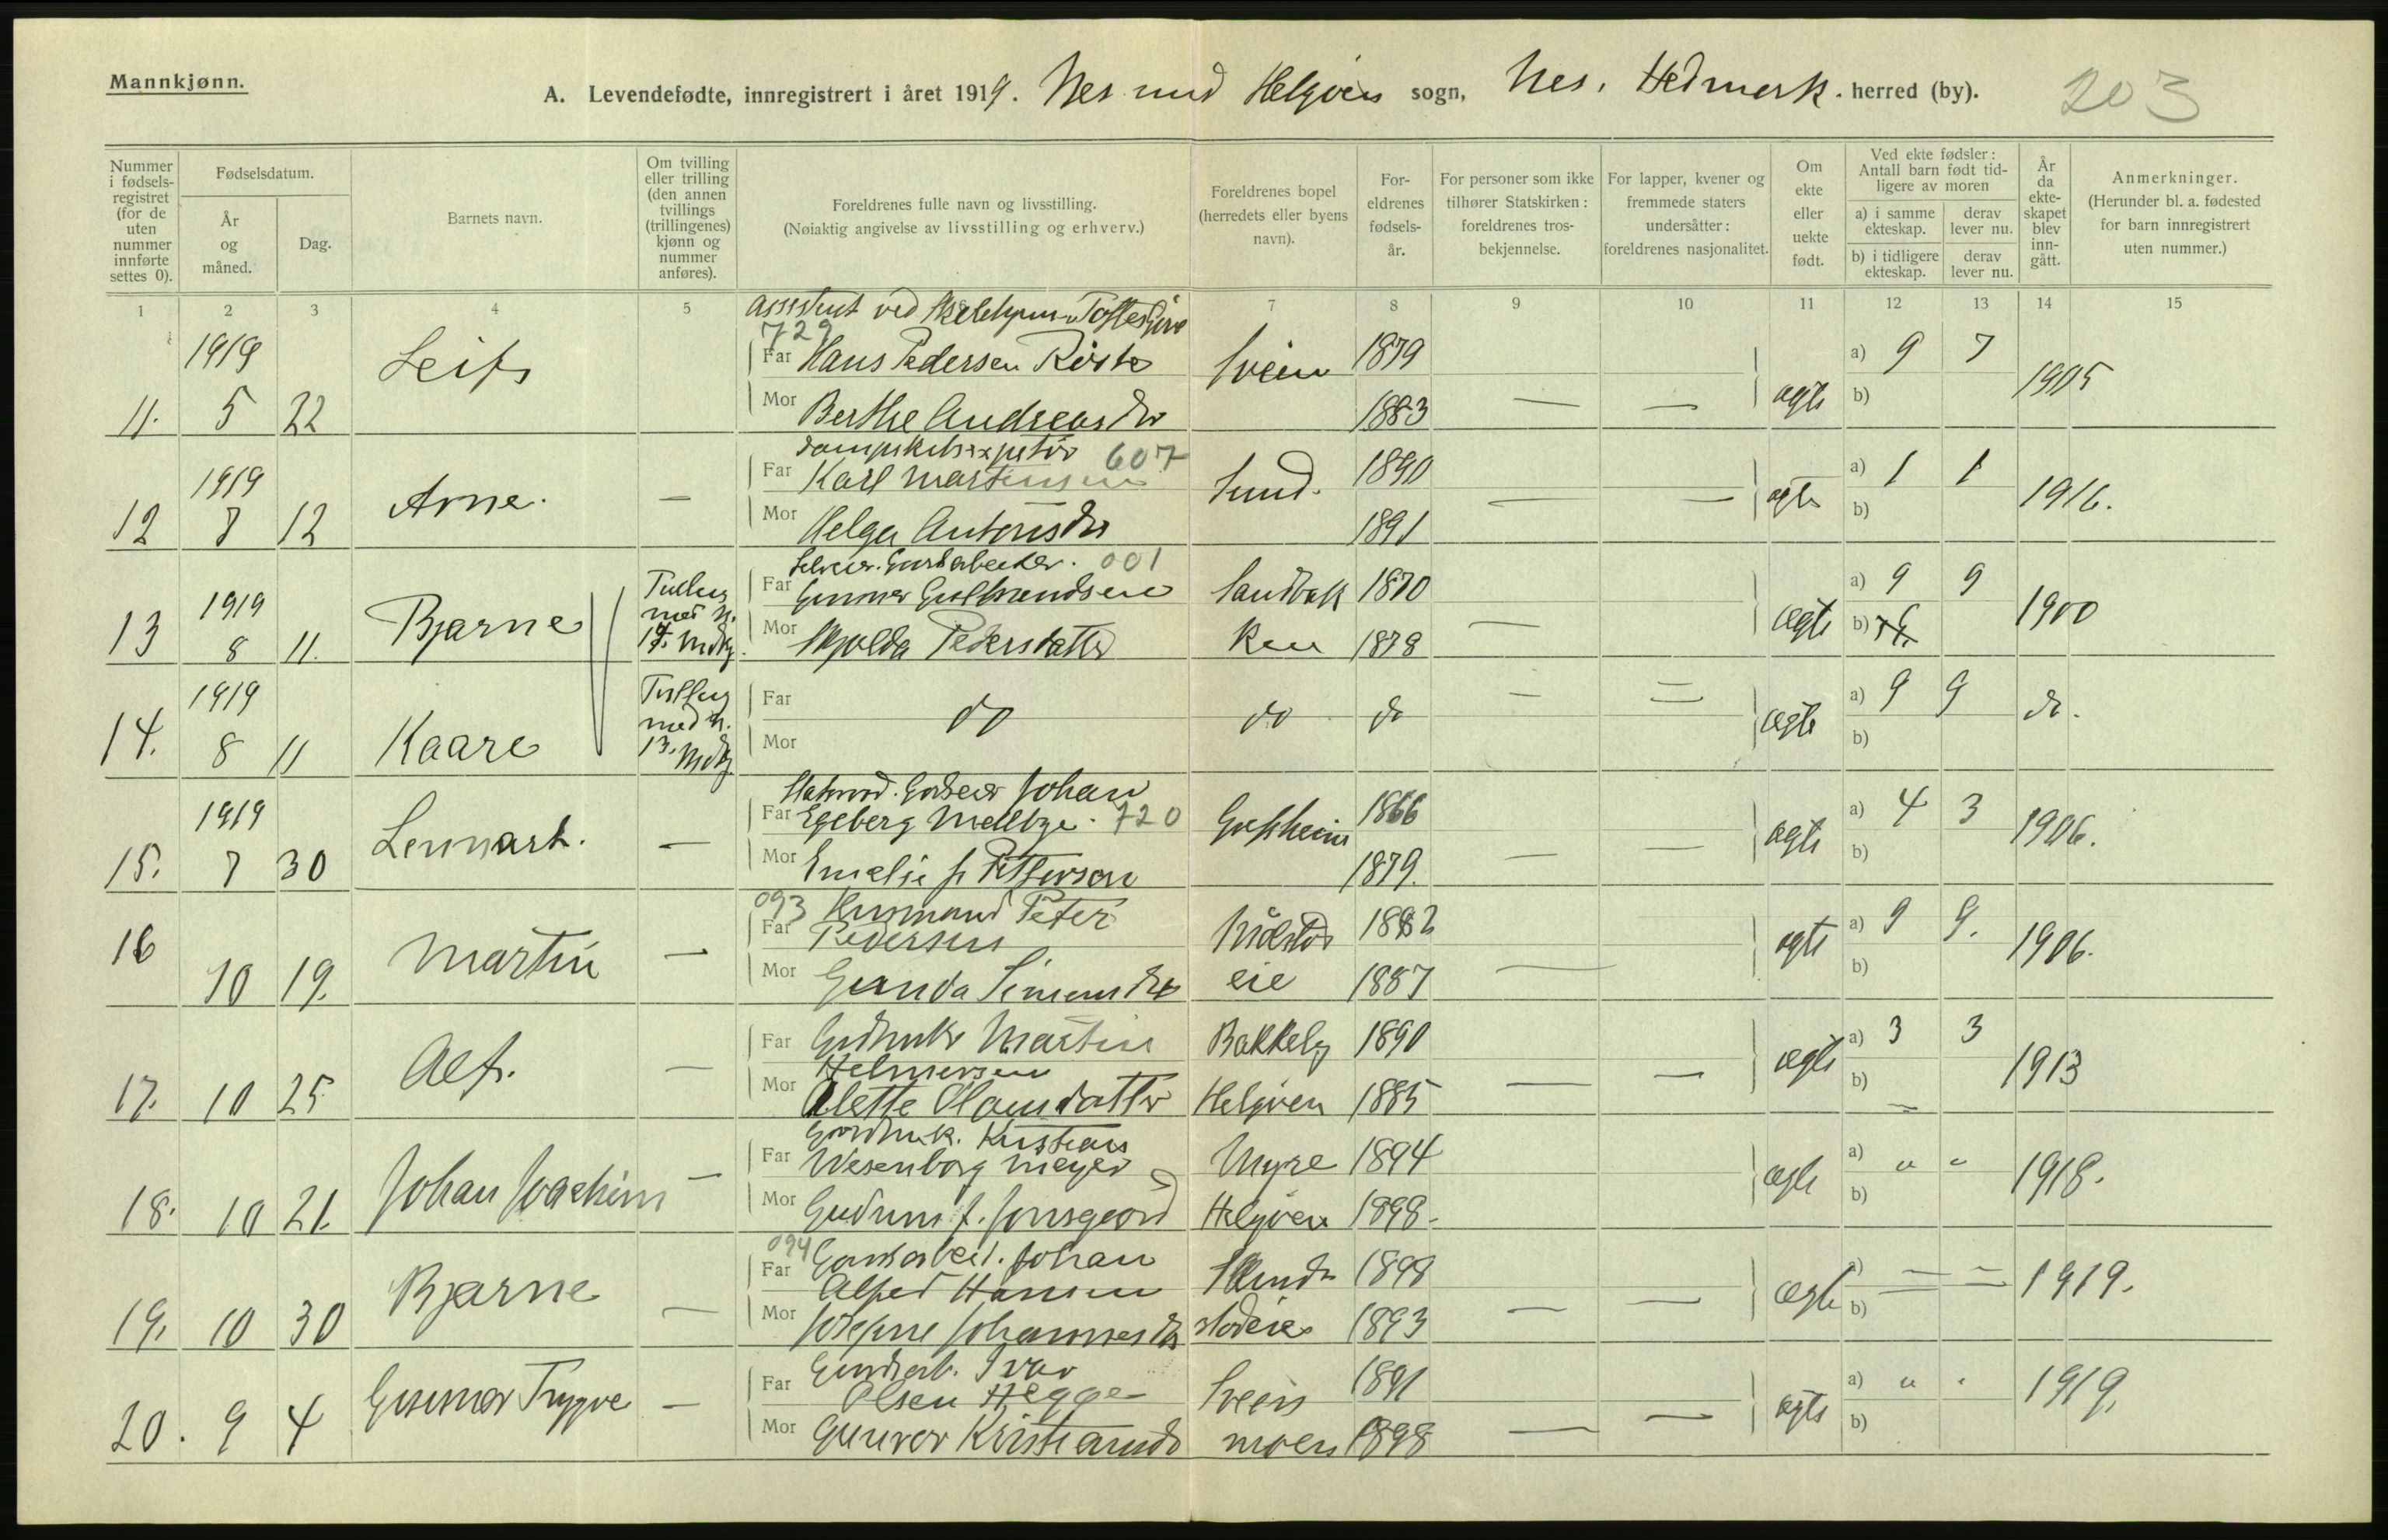 Mannkjønn.
A. Levendefødte, innregistrert i året 1919. Nes med Helgøen sogn, Nes, Hedmark. herred (by). 203
Nummer i fødselsregistret (for de uten nummer innførte settes 0).
Fødselsdatum.
År og måned.
Dag.
Barnets navn.
Om tvilling eller trilling (den annen tvillings (trillingenes) kjønn og nummer anføres).
Foreldrenes fulle navn og livsstilling.
(Nøiaktig angivelse av livsstilling og erhverv.)
Foreldrenes bopel (herredets eller byens navn).
Foreldrenes fødselsår.
For personer som ikke tilhører Statskirken: foreldrenes trosbekjennelse.
For lapper, kvener og fremmede staters undersåtter: foreldrenes nasjonalitet.
Om ekte eller uekte født.
Ved ekte fødsler: Antall barn født tidligere av moren
a) i samme ekteskap.
derav lever nu.
b) i tidligere ekteskap.
derav lever nu.
År da ekteskapet blev inngått.
Anmerkninger.
(Herunder bl. a. fødested for barn innregistrert uten nummer.)
1 2 3 4 5 7 8 9 10 11 12 13 14 15
assistent ved
729
1919 Leif Far Hans Pedersen Sveen 1879 a) 9 7 1905
11. 5 22 Mor Berthe Andreasdr 1883 — — ægte b)
607
1919 Arne. — Far Karl Martinsen Sund. 1890 a) 1 1 1916.
12 7 12 Mor Helga Antonsdr 1891 — — ægte b)
Selveier. Gardarbeider. 001
1919 Bjarne Tvilling med n. 14. Mdkj. Far Gunner Gulbrandsen Sandbak 1870 a) 9 9 1900
13 8 11. Mor Pedersdatter ken 1878 — ægte b)
1919 Kaare Tvilling med n. 13. Mdkj Far do do do — — ægte a) 9 9 do.
14. 8 11 Mor b)
Johan
1919 Lennart. — Far Egeberg Mellbye. 720 1866 a) 4 3 1906.
15. 7 30 Mor Emelie f. Petterson 1879. — — ægte b)
093 Husmand Peter
16 Martin — Far Pedersen 1882 ægte a) 9 9. 1906.
10 19. Mor Gunda Simensdr eie 1887 — b)
17. 10 25 Alf. — Far Gardbruker Martin Bakkely 1890 ægte a) 3 3 1913
Helmersen
Mor Olette Olausdatter Helgøen 1885 — — b) —
Gardbruk. Kristian
Far Wesenborg Meyer Myre 1894 a) " " 1918.
18. 10 21. Johan Joachim — Mor Gudrun f. Jonsgaard Helgøen 1898. ægte b)
094 Gardsarbeid. Johan
Bjarne — Far Alfred Hansen 1898 ægte a) — — 1919.
19. 10 30 Mor Josefine Johannesdr 1893 — — b)
Gardsarb. Ivar
Gunnar Trygve — Far Olsen Hegge Sveen 1891 a) " " 1919.
20. 9 4 Mor Gunvor Kristiansdr moen 1898 — — ægte b)